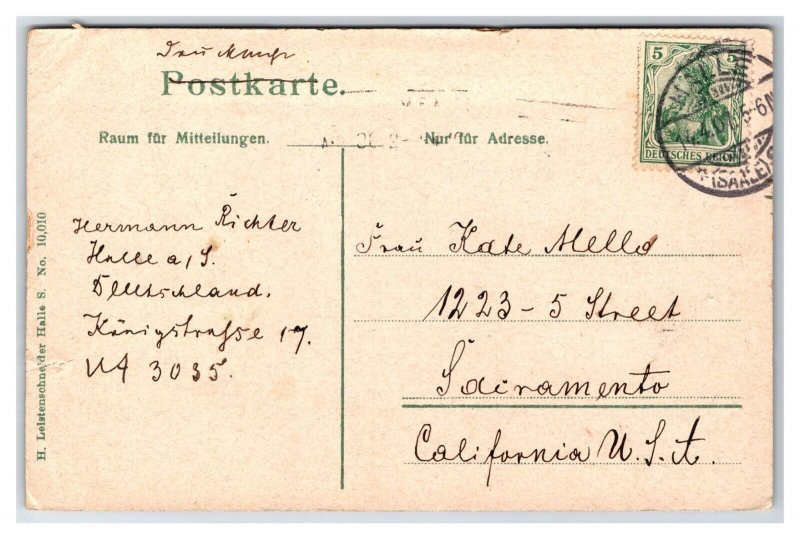 Postkarte.
5 5
DEUTSCHES REICH
(SAALE)
Raum für Mitteilungen.
Nur für Adresse.
Hermann Richter
Halle a/S.
Deutschland.
Königstrasse 17.
3035.
Frau Kate Mello
1223-5 Street
Sacramento
California U.S.A.
H. Leistenschneider Halle S. No. 10,010